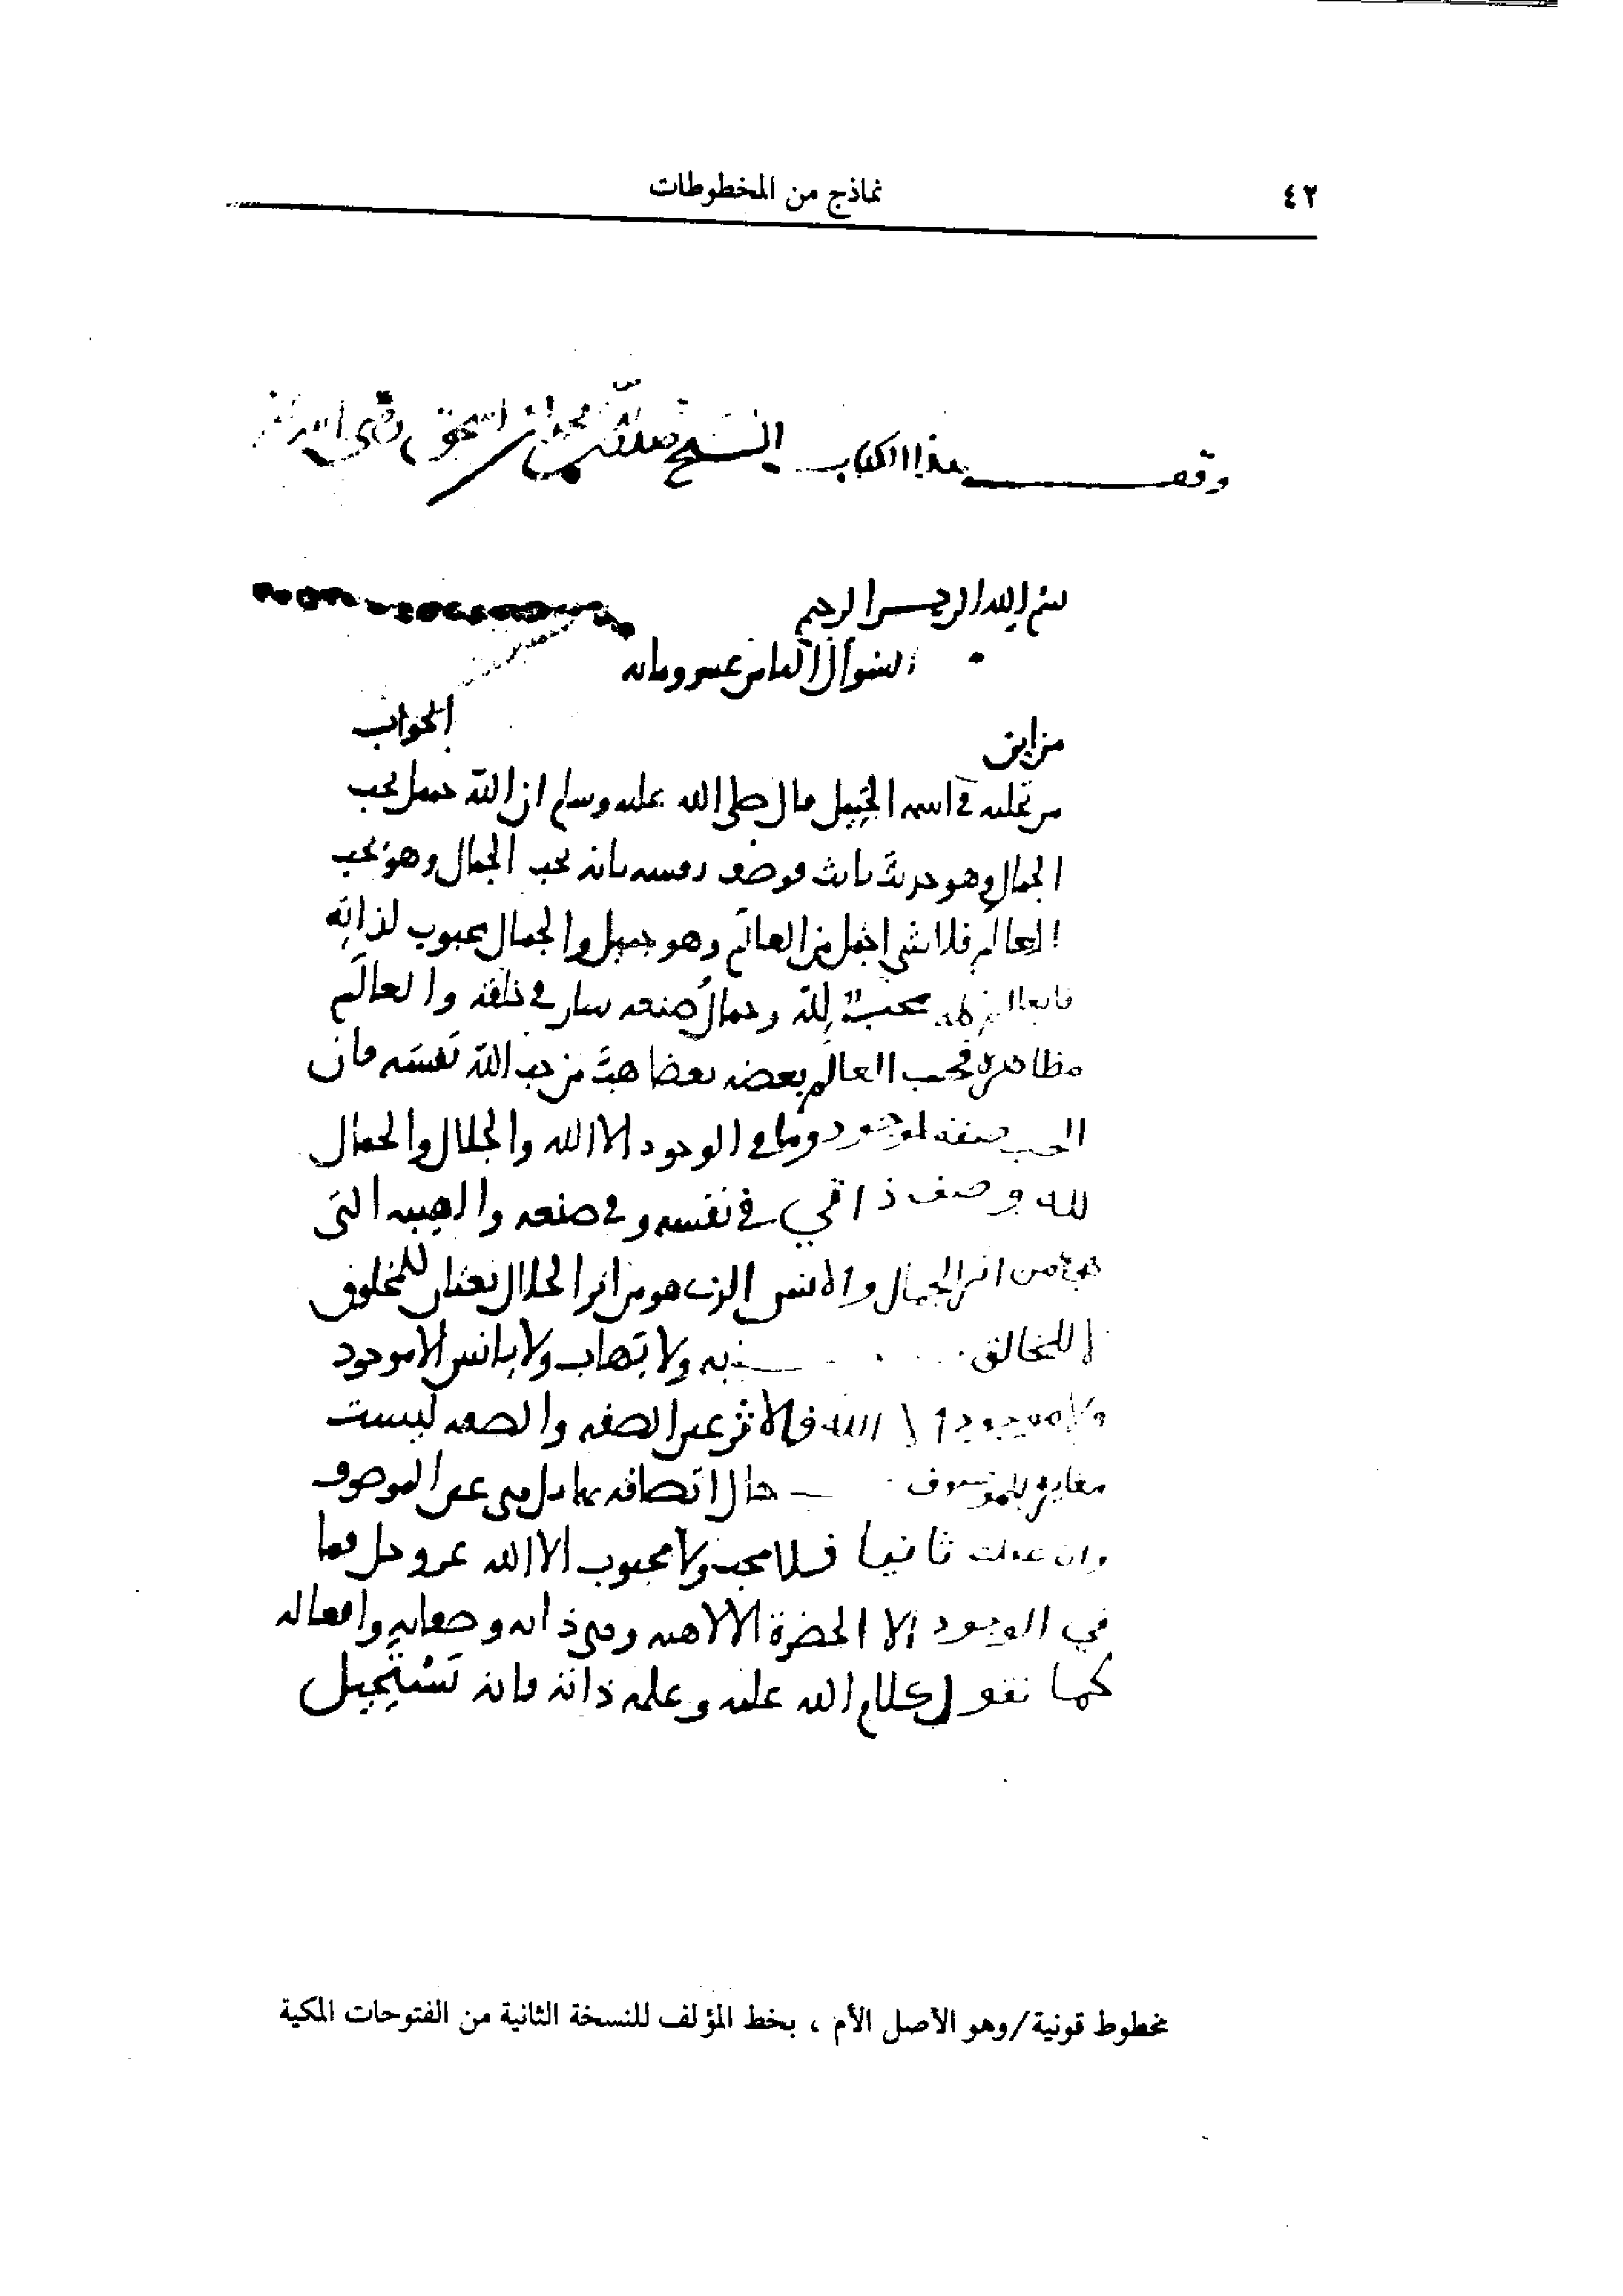 ٤٢
نماذج من المخطوطات
وقف هذا الكتاب الشيخ صدر الدين محمد بن اسحق رضي الله عنه
بسم الله الرحمن الرحيم
السوال الثامن عشر ومائه
من اين
الجواب
من تجليه في اسمه الجميل قال صلى الله عليه وسلم ان الله جميل يحب
الجمال وهو حديث ثابت فوصف نفسه بانه يحب الجمال وهو يحب
العالم فلا شي اجمل من العالم وهو جميل والجمال محبوب لذاته
فالعالم كله محب لله وجمال صنعه سار في خلقه والعالم
مظاهره فحب العالم بعضه بعضا هو من حب الله نفسه فان
الحب صفه لموجود وما في الوجود الا الله والجلال والجمال
لله وصف ذاتي في نفسه وفي صنعه والهيبه التي
هي من اثر الجمال والانس الذي هو من اثر الجلال نعتان للمخلوق
لا للخالق به ولا يهاب ولا يانس الا موجود
ولا موجود الا الله فالاثر عين الصفه والصفه ليست
مغايره للموصوف حال اتصافه بها بل هي عين الموصوف
وان عقلت ثانيا فلا محب ولا محبوب الا الله عز وجل فما
في الوجود الا الحضرة الالاهيه وهي ذاته وصفاته وافعاله
كما نقول كلام الله علمه وعلمه ذاته فانه يستحيل
مخطوط قونية/وهو الأصل الأم ، بخط المؤلف للنسخة الثانية من الفتوحات المكية